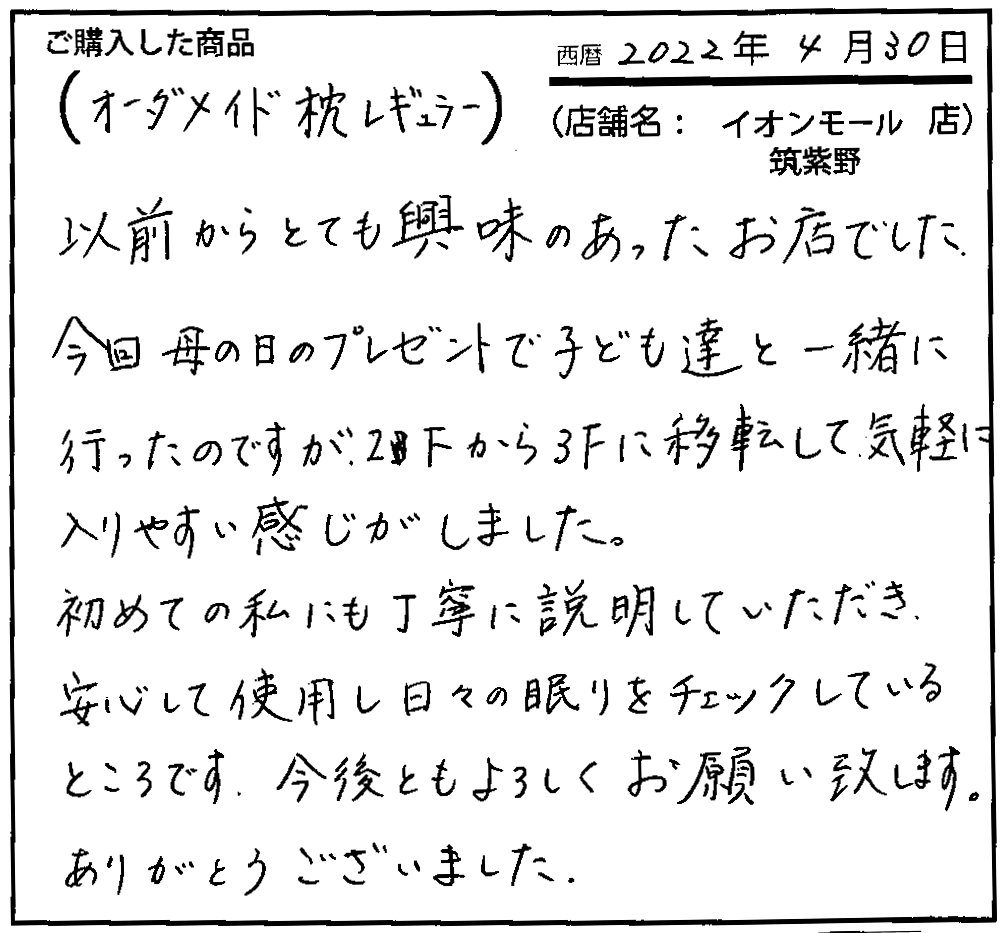 ご購入した商品
西暦 2022年 4月30日
(オーダメイド枕レギュラー)
(店舗名: イオンモール 店)
筑紫野
以前からとても興味のあったお店でした.
今回母の日のプレゼントで子ども達と一緒に
行ったのですが、2Fから3Fに移転して気軽に
入りやすい感じがしました。
初めての私にも丁寧に説明していただき、
安心して使用し日々の眠りをチェックしている
ところです. 今後ともよろしくお願い致します。
ありがとうございました.